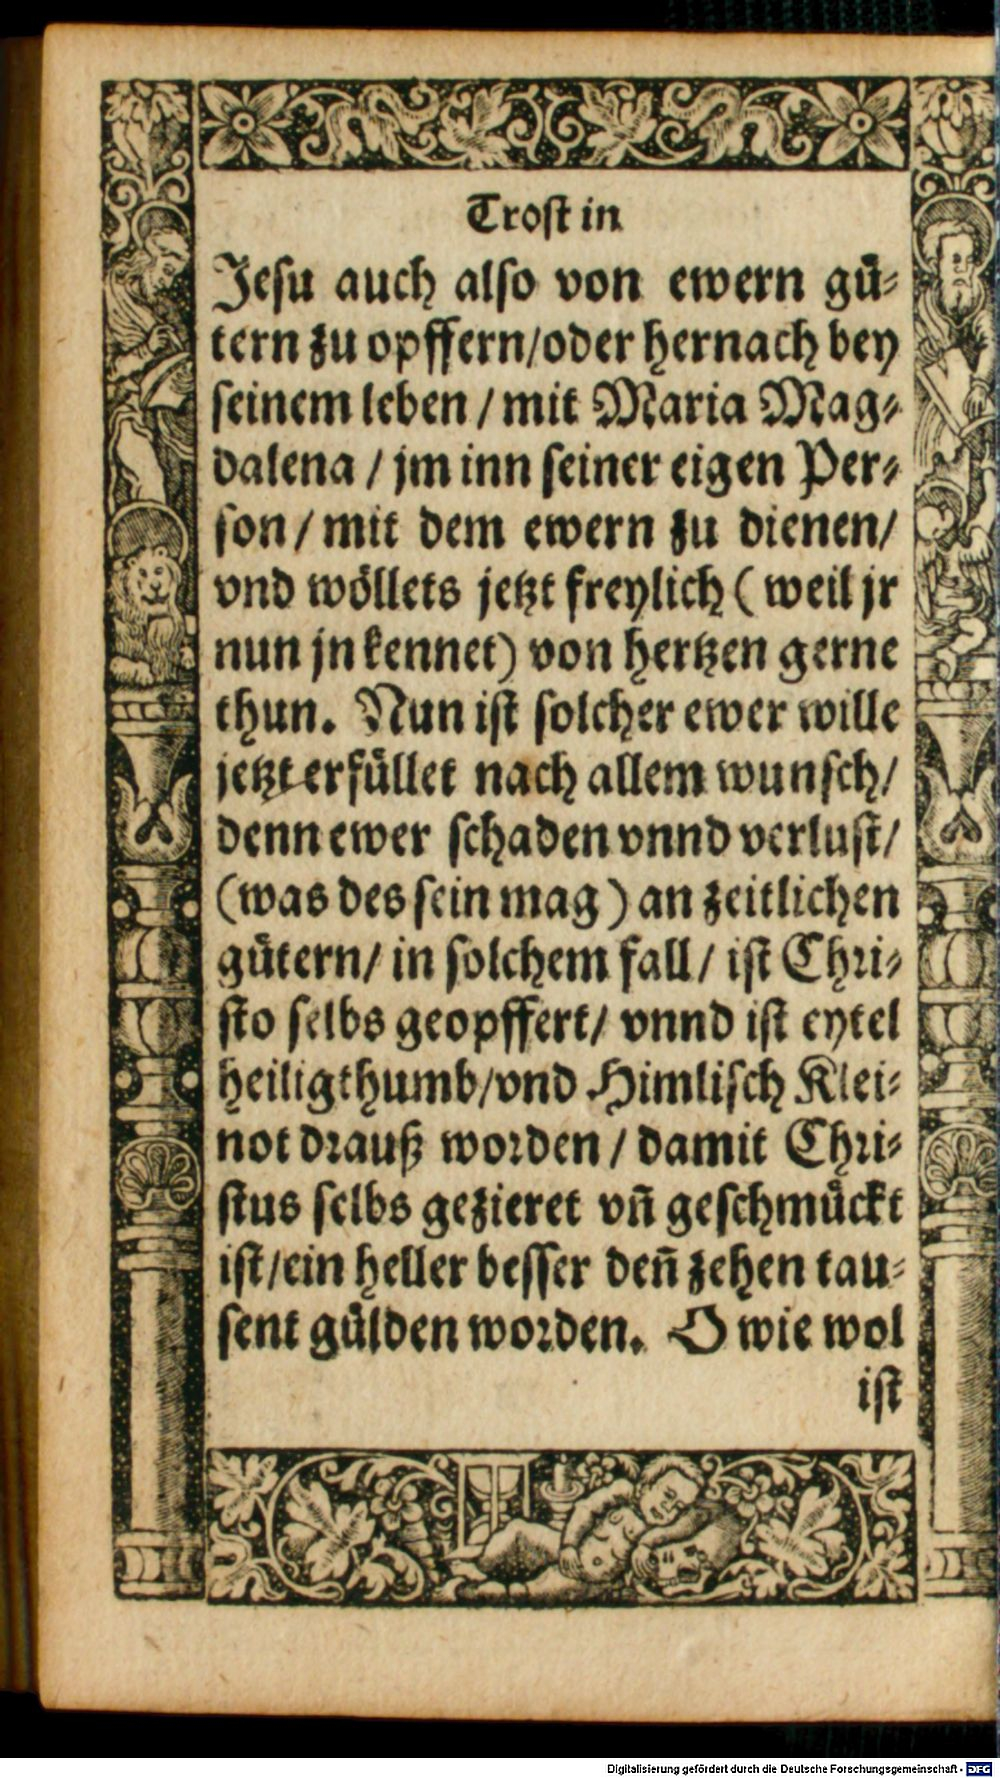 Troſt in
Jeſu auch alſo von ewern guͤ⸗
tern zu opffern/oder hernach bey
ſeinem leben / mit Maria Mag⸗
dalena / jm inn ſeiner eigen Per⸗
ſon / mit dem ewern zu dienen/
vnd woͤllets jetzt freylich ( weil jr
nun jn kennet) von hertzen gerne
thun. Nun iſt ſolcher ewer wille
jetzt erfuͤllet nach allem wunſch/
denn ewer ſchaden vnnd verluſt/
(was des ſein mag ) an zeitlichen
guͤtern/ in ſolchem fall/ iſt Chri⸗
ſto ſelbs geopffert/ vnnd iſt eytel
heiligthumb/vnd Himliſch Klei⸗
not drauß worden / damit Chri⸗
ſtus ſelbs gezieret vñ geſchmuͤckt
iſt/ein heller beſſer deñ zehen tau⸗
ſent guͤlden worden. O wie wol
iſt
Digitalisierung gefördert durch die Deutsche Forschungsgemeinschaft - DFG